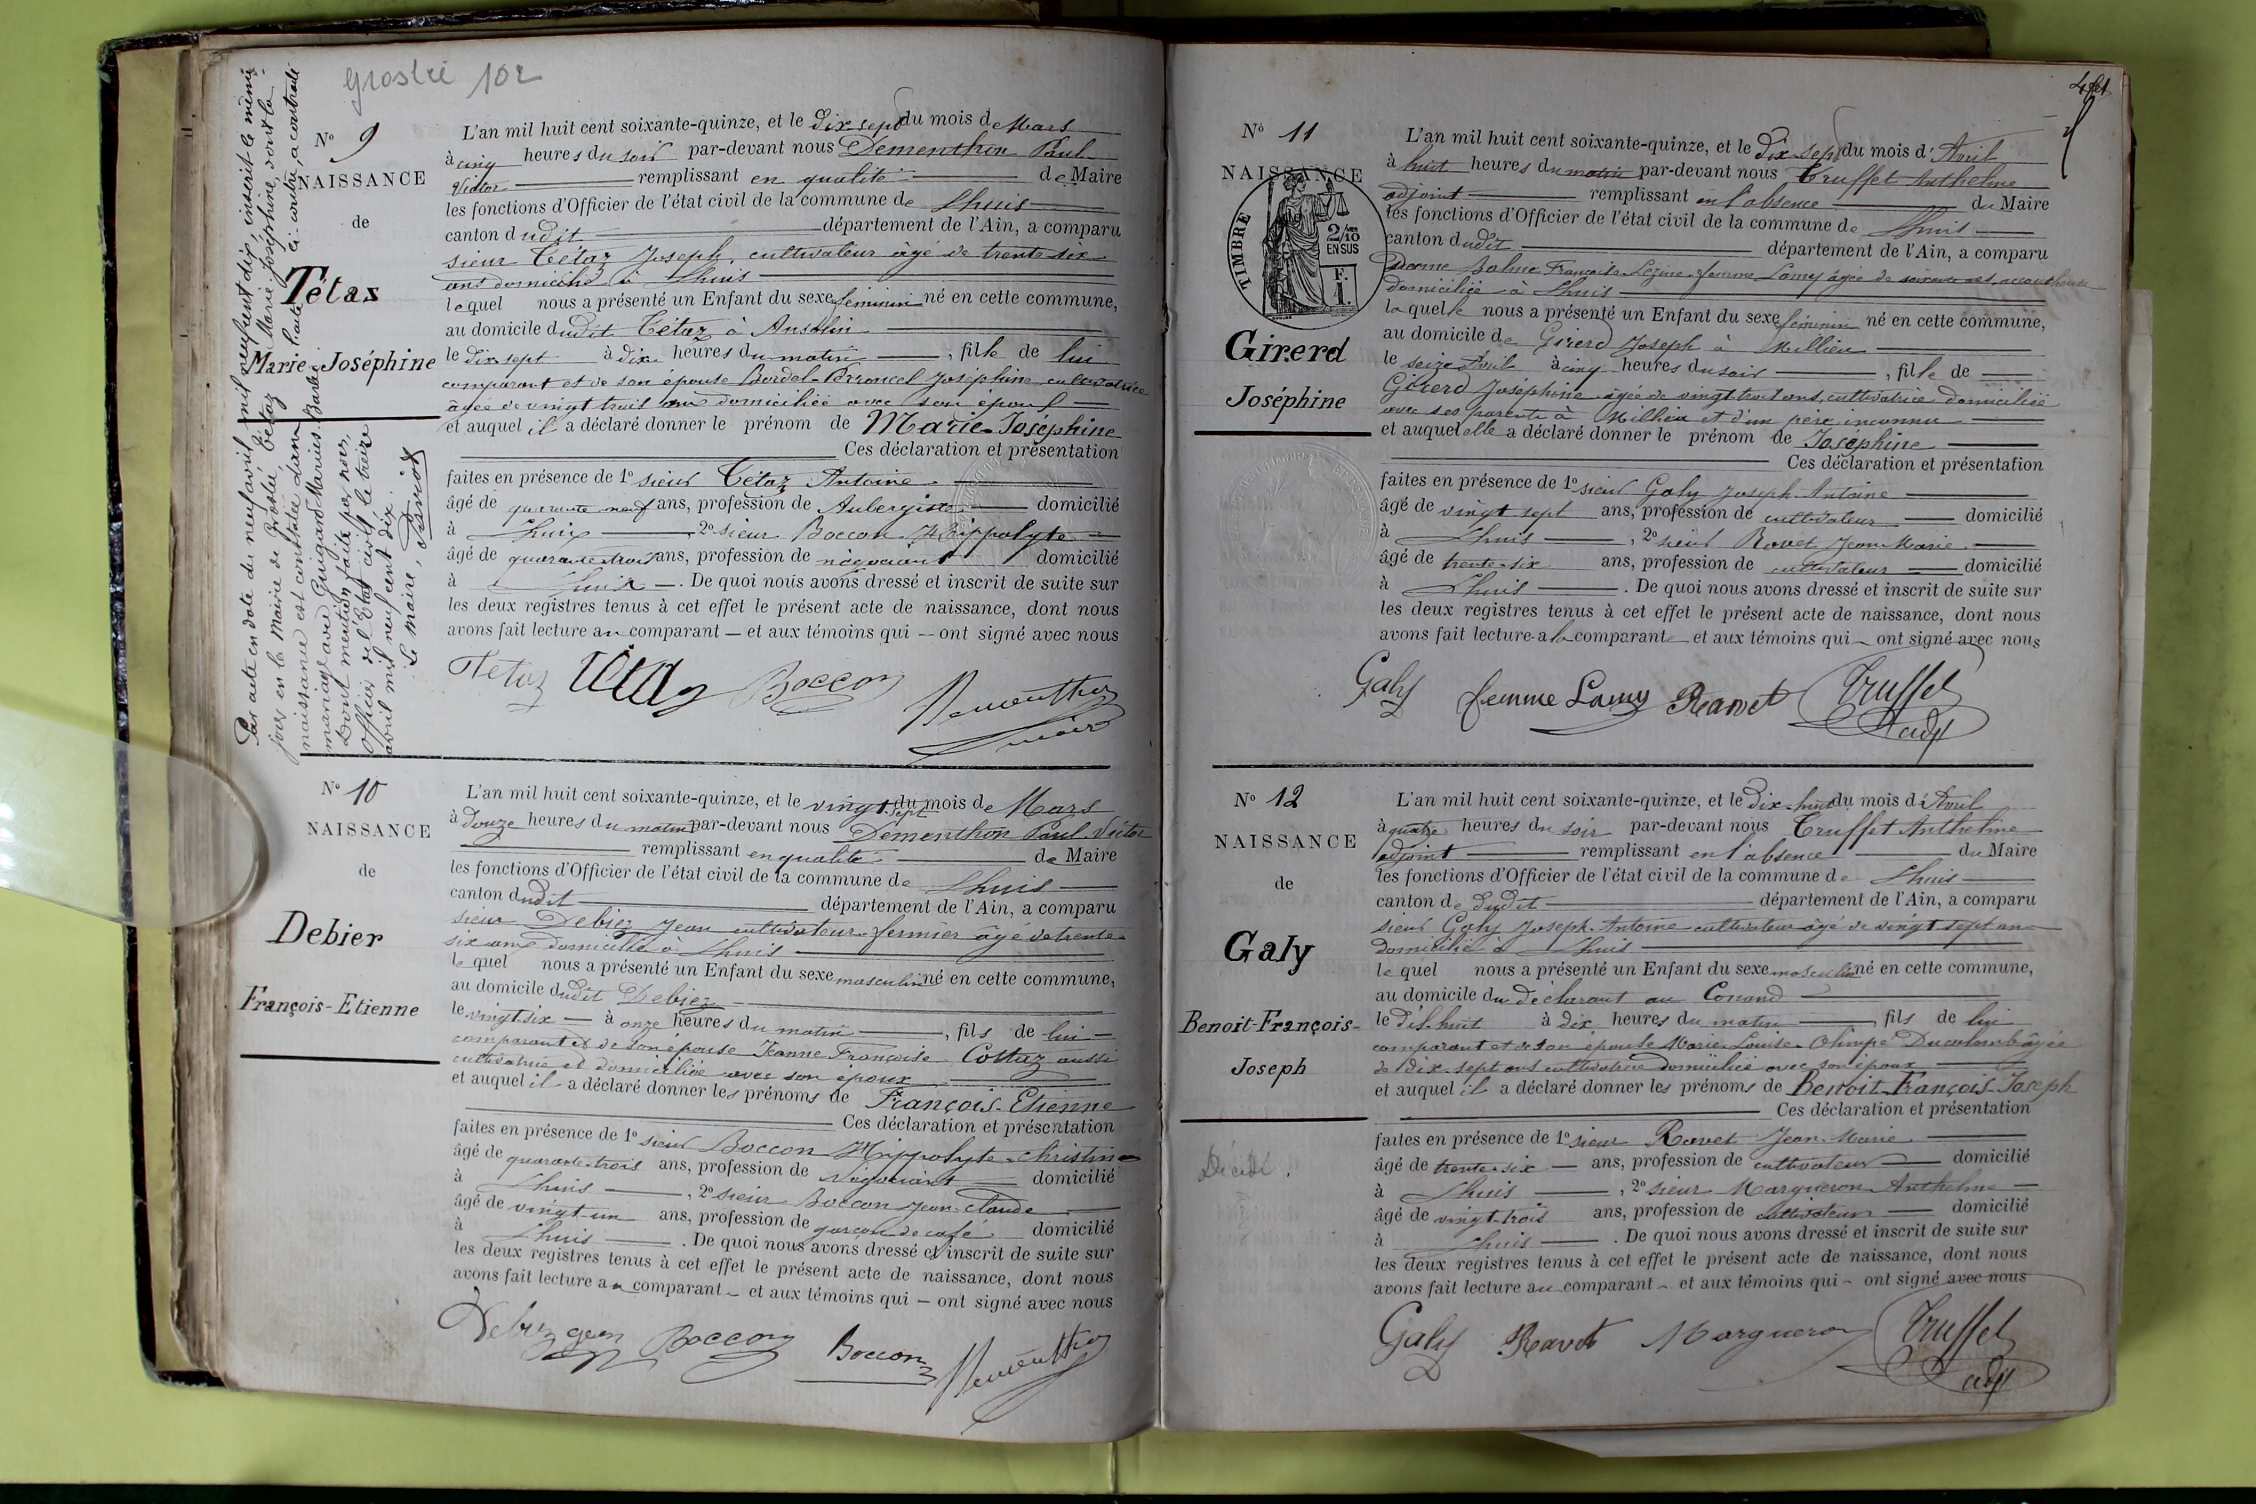 Groslée 102
Par acte en date du neuf avril mil neuf cent dix, inscrit le même
jour en la Mairie de Groslée, Tétaz Marie Joséphine, dont la
naissance est constatée dans l'acte ci-contre, a contracté
mariage avec Guigard Marius Barbe
Dont mention faite par nous,
Officier de l'Etat civil, le treize
avril mil neuf cent dix.
Le Maire,
N° 9
NAISSANCE
de
Tétaz
Marie-Joséphine
L'an mil huit cent soixante-quinze, et le dix-sept du mois de Mars
à cinq heures du soir par-devant nous Dementhon Paul
Victor remplissant en qualité de Maire
les fonctions d'Officier de l'état civil de la commune de Lhuis
canton dudit département de l'Ain, a comparu
sieur Tétaz Joseph, cultivateur âgé de trente six
ans domicilié à Lhuis
lequel nous a présenté un Enfant du sexe féminin né en cette commune,
au domicile dudit Tétaz à Ansolin
le dix sept à dix heures du matin, fille de lui
comparant et de son épouse Bordel-Perroncel Joséphine cultivatrice
âgée de vingt trois ans domiciliée avec son époux
et auquel il a déclaré donner le prénom de Marie-Joséphine
Ces déclaration et présentation
faites en présence de 1° sieur Tétaz Antoine
âgé de quarante neuf ans, profession de Aubergiste domicilié
à Lhuis, 2° sieur Boccon Hippolyte
âgé de quarante trois ans, profession de négociant domicilié
à Lhuis. De quoi nous avons dressé et inscrit de suite sur
les deux registres tenus à cet effet le présent acte de naissance, dont nous
avons fait lecture au comparant et aux témoins qui ont signé avec nous
Tetaz Tétaz Boccon Dementhon
maire
N° 10
NAISSANCE
de
Debier
François-Etienne
L'an mil huit cent soixante-quinze, et le vingt sept du mois de Mars
à douze heures du matin par-devant nous Dementhon Paul Victor
remplissant en qualité de Maire
les fonctions d'Officier de l'état civil de la commune de Lhuis
canton dudit département de l'Ain, a comparu
sieur Debiez Jean cultivateur fermier âgé de trente
six ans domicilié à Lhuis
lequel nous a présenté un Enfant du sexe masculin né en cette commune,
au domicile dudit Debiez
le vingt six à onze heures du matin, fils de lui
comparant et de son épouse Jeanne Françoise Cottaz aussi
cultivatrice et domiciliée avec son époux
et auquel il a déclaré donner les prénoms de François-Etienne
Ces déclaration et présentation
faites en présence de 1° sieur Boccon Hippolyte Christin
âgé de quarante trois ans, profession de négociant domicilié
à Lhuis, 2° sieur Boccon Jean Claude
âgé de vingt un ans, profession de garçon de café domicilié
à Lhuis. De quoi nous avons dressé et inscrit de suite sur
les deux registres tenus à cet effet le présent acte de naissance, dont nous
avons fait lecture au comparant et aux témoins qui ont signé avec nous
Debiez jean Boccon Boccon Dementhon
N° 11
NAISSANCE
TIMBRE
2/10
EN SUS
Girerd
Joséphine
L'an mil huit cent soixante-quinze, et le dix sept du mois d'Avril
à huit heures du matin par-devant nous Truffet Anthelme
adjoint remplissant en l'absence du Maire
les fonctions d'Officier de l'état civil de la commune de Lhuis
canton dudit département de l'Ain, a comparu
Dame Balme Françoise Lézine femme Lamy âgée de soixante ans, accoucheuse
domiciliée à Lhuis
laquelle nous a présenté un Enfant du sexe féminin né en cette commune,
au domicile de Girerd Joseph à Millieu
le seize Avril à cinq heures du soir, fille de
Girerd Joséphine âgée de vingt trois ans, cultivatrice domiciliée
avec ses parents à Millieu et d'un père inconnu
et auquel elle a déclaré donner le prénom de Joséphine
Ces déclaration et présentation
faites en présence de 1° sieur Galy Joseph Antoine
âgé de vingt sept ans, profession de cultivateur domicilié
à Lhuis, 2° sieur Ravet Jean Marie
âgé de trente-six ans, profession de cultivateur domicilié
à Lhuis. De quoi nous avons dressé et inscrit de suite sur
les deux registres tenus à cet effet le présent acte de naissance, dont nous
avons fait lecture à la comparante et aux témoins qui ont signé avec nous
Galy femme Lamy Ravet Truffet
adj
N° 12
NAISSANCE
de
Galy
Benoit-François-
Joseph
Décédé.
L'an mil huit cent soixante-quinze, et le dix-huit du mois d'Avril
à quatre heures du soir par-devant nous Truffet Anthelme
adjoint remplissant en l'absence du Maire
les fonctions d'Officier de l'état civil de la commune de Lhuis
canton de dudit département de l'Ain, a comparu
sieur Galy Joseph Antoine cultivateur âgé de vingt sept ans
domicilié à Lhuis
lequel nous a présenté un Enfant du sexe masculin né en cette commune,
au domicile du déclarant au Conand
le dix huit à dix heures du matin, fils de lui
comparant et de son épouse Marie Louise Olimpe Ducolombâgée
de dix-sept ans cultivatrice domiciliée avec son époux
et auquel il a déclaré donner les prénoms de Benoit-François-Joseph
Ces déclaration et présentation
faites en présence de 1° sieur Ravet Jean-Marie
âgé de trente-six ans, profession de cultivateur domicilié
à Lhuis, 2° sieur Margueron Anthelme
âgé de vingt-trois ans, profession de cultivateur domicilié
à Lhuis. De quoi nous avons dressé et inscrit de suite sur
les deux registres tenus à cet effet le présent acte de naissance, dont nous
avons fait lecture au comparant et aux témoins qui ont signé avec nous
Galy Ravet Margueron Truffet
adj